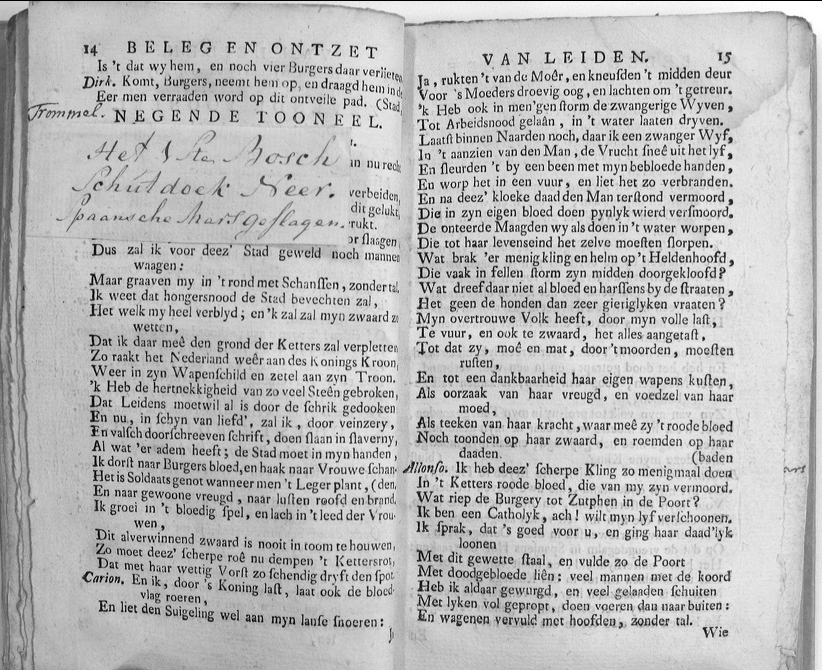 14 BELEG EN ONTZET
Is 't dat wy hem, en noch vier Burgers daar verlieten
Dirk. Komt, Burgers, neemt hem op, en draagd hem in de
Eer men verraaden word op dit ontveile pad. (Stad,
Trommel. NEGENDE TOONEEL.
Het
Bosch
in nu recht
Schutdoek Neer.
verbeiden,
dit gelukt,
Spaansche Mars geslagen.
rukt.
or slaagen
Dus zal ik voor deez' Stad geweld noch mannen
waagen:
Maar graaven my in 't rond met Schanſſen, zonder tal,
Ik weet dat hongersnood de Stad bevechten zal,
Het welk my heel verblyd; en 'k zal zal myn zwaard
wetten,
Dat ik daar meê den grond der Ketters zal verpletten
Zo raakt het Nederland weêr aan des Konings Kroon,
Weer in zyn Wapenſchild en zetel aan zyn Troon.
'k Heb de hertnekkigheid van zo veel Steên gebroken,
Dat Leidens moetwil al is door de ſchrik gedooken
En nu, in ſchyn van liefd', zal ik, door veinzery,
En valſch doorſchreeven ſchrift, doen ſlaan in ſlaverny,
Al wat 'er adem heeft; de Stad moet in myn handen,
Ik dorſt naar Burgers bloed, en haak naar Vrouwe ſchan-
Het is Soldaats genot wanneer men 't Leger plant, (den,
En naar gewoone vreugd, naar luſten roofd en brand,
Ik groei in 't bloedig ſpel, en lach in 't leed der Vrou-
wen,
Dit alverwinnend zwaard is nooit in toom te houwen,
Zo moet deez' ſcherpe roê nu dempen 't Kettersrot,
Dat met haar wettig Vorſt zo ſchendig dryft den ſpot.
Carion. En ik, door 's Koning laſt, laat ook de bloed-
vlag roeren,
En liet den Suigeling wel aan myn lanſe ſnoeren:
VAN LEIDEN. 15
Ja, rukten 't van de Moêr, en kneuſden 't midden deur
Voor 's Moeders droevig oog, en lachten om 't getreur.
'k Heb ook in men'gen ſtorm de zwangerige Wyven,
Tot Arbeidsnood gelaân, in 't water laaten dryven.
Laatſt binnen Naarden noch, daar ik een zwanger Wyf,
In 't aanzien van den Man, de Vrucht ſneê uit het lyf,
En ſleurden 't by een been met myn bebloede handen,
En worp het in een vuur, en liet het zo verbranden.
En na deez' kloeke daad den Man terſtond vermoord,
Die in zyn eigen bloed doen pynlyk wierd verſmoord.
De onteerde Maagden wy als doen in 't water worpen,
Die tot haar levenseind het zelve moeſten ſlorpen.
Wat brak 'er menig kling en helm op 't Heldenhoofd,
Die vaak in fellen ſtorm zyn midden doorgekloofd?
Wat dreef daar niet al bloed en harſſens by de ſtraaten,
Het geen de honden dan zeer gieriglyken vraaten?
Myn overtrouwe Volk heeft, door myn volle laſt,
Te vuur, en ook te zwaard, het alles aangetaſt,
Tot dat zy, moê en mat, door 't moorden, moeſten
ruſten,
En tot een dankbaarheid haar eigen wapens kuſten,
Als oorzaak van haar vreugd, en voedzel van haar
moed,
Als teeken van haar kracht, waar meê zy 't roode bloed
Noch toonden op haar zwaard, en roemden op haar
daaden. (baden
Allonſo. Ik heb deez' ſcherpe Kling zo menigmaal doen
In 't Ketters roode bloed, die van my zyn vermoord.
Wat riep de Burgery tot Zutphen in de Poort?
Ik ben een Catholyk, ach! wilt myn lyf verſchoonen.
Ik ſprak, dat 's goed voor u, en ging haar daad'lyk
loonen
Met dit gewette ſtaal, en vulde zo de Poort
Met doodgebloede liên: veel mannen met de koord
Heb ik aldaar gewurgd, en veel gelaaden ſchuiten
Met lyken vol gepropt, doen voeren dan naar buiten:
En wagenen vervuld met hoofden, zonder tal.
Wie